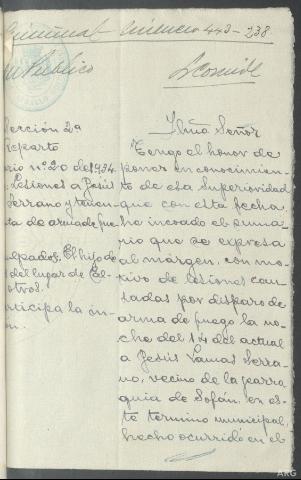 Criminal
443-238
Público
Sección 2ª
Reparto
nº 20 de 1934.
Lesiones a Jesús
Serrano y tenen-
cia de arma de fue-
El hijo de
del lugar de El-
otros.
participa la in-
Ilmo Señor
Tengo el honor de
poner en conocimien-
to de esa Superioridad
que con esta fecha,
he incoado el suma-
rio que se expresa
al márgen, con mo-
tivo de lesiones cau-
sadas por disparo de
arma de fuego la no-
che del 14 del actual
a Jesús Lamas Serra-
no, vecino de la parro-
quia de Sofán, en es-
te termino municipal,
hecho ocurrido en el
ARG